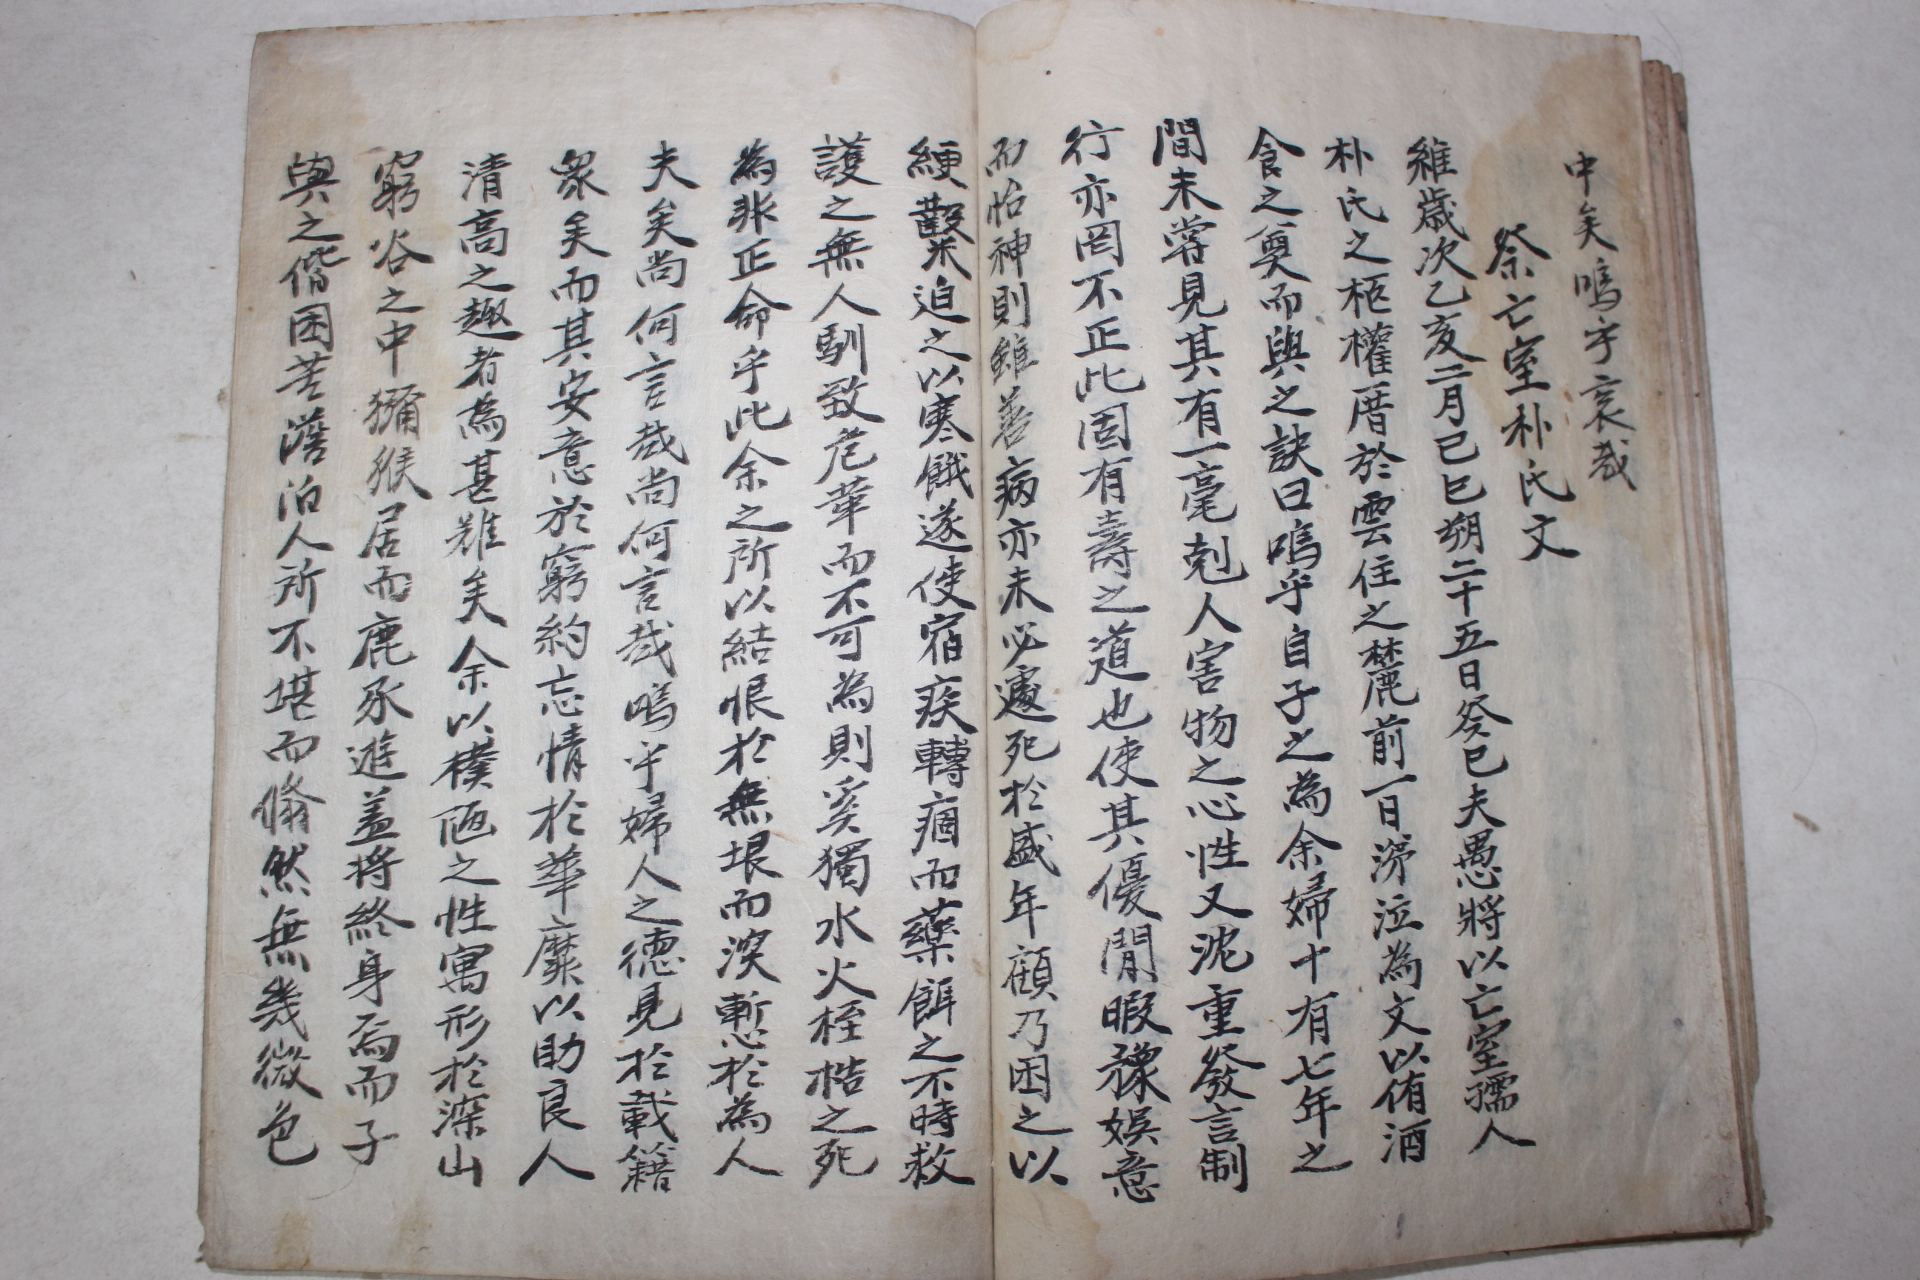 中矣嗚乎哀哉
祭亡室朴氏文
維歲次乙亥二月己巳朔二十五日癸巳夫愚將以亡室孺人
朴氏之柩權厝於雲住之麓前一日涕泣為文以侑酒
食之奠而與之訣曰嗚乎自子之為余婦十有七年之
間未嘗見其有一毫剋人害物之心性又沈重發言制
行亦罔不正此固有壽之道也使其優閒暇豫娛意
而怡神則雖善病亦未必遽死於盛年顧乃困之以
綆觳米迫之以寒餓遂使宿疾轉痼而藥餌之不時救
護之無人馴致危革而不可為則奚獨水火桎梏之死
為非正命乎此余之所以結恨於無垠而深慙於為人
夫矣尚何言哉尚何言哉嗚乎婦人之德見於載籍
衆矣而其安意於窮約忘情於華靡以助良人
清高之趣者為甚難矣余以樸陋之性寓形於深山
窮谷之中獼猴居而鹿豕遊盖將終身焉而子
與之偕困苦澹泊人所不堪而翛然無幾微色